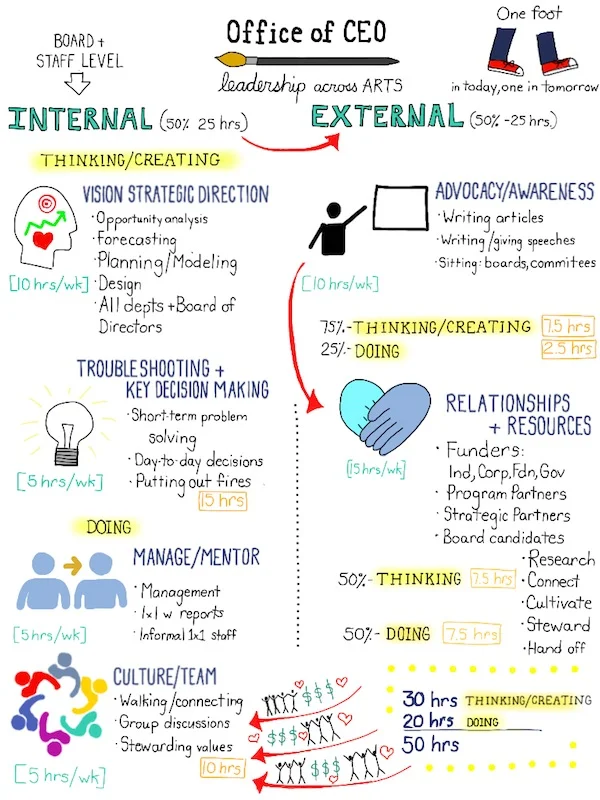 BOARD +
STAFF LEVEL
Office of CEO
leadership across ARTS
One foot
in today, one in tomorrow
INTERNAL (50% 25 hrs)
EXTERNAL (50% -25 hrs.)
THINKING/CREATING
VISION STRATEGIC DIRECTION
• Opportunity analysis
• Forecasting
• Planning/Modeling
• Design
• All depts + Board of
Directors
[10 hrs/wk]
TROUBLESHOOTING +
KEY DECISION MAKING
• Short-term problem
solving
• Day-to-day decisions
• Putting out fires
[5 hrs/wk]
15 hrs
DOING
MANAGE/MENTOR
• Management
• 1x1 w reports
• Informal 1x1 staff
[5 hrs/wk]
CULTURE/TEAM
• Walking/connecting
• Group discussions
• Stewarding values
[5 hrs/wk]
10 hrs
ADVOCACY/AWARENESS
• Writing articles
• Writing/giving speeches
• Sitting: boards, commitees
[10 hrs/wk]
75%- THINKING/CREATING 7.5 hrs
25%- DOING 2.5 hrs
RELATIONSHIPS
+ RESOURCES
• Funders:
Ind, Corp, Fdn, Gov
• Program Partners
• Strategic Partners
• Board candidates
[15 hrs/wk]
• Research
• Connect
• Cultivate
• Steward
• Hand off
50%- THINKING 7.5 hrs
50%- DOING 7.5 hrs
$$$
$$$
$$$
30 hrs THINKING/CREATING
20 hrs DOING
50 hrs